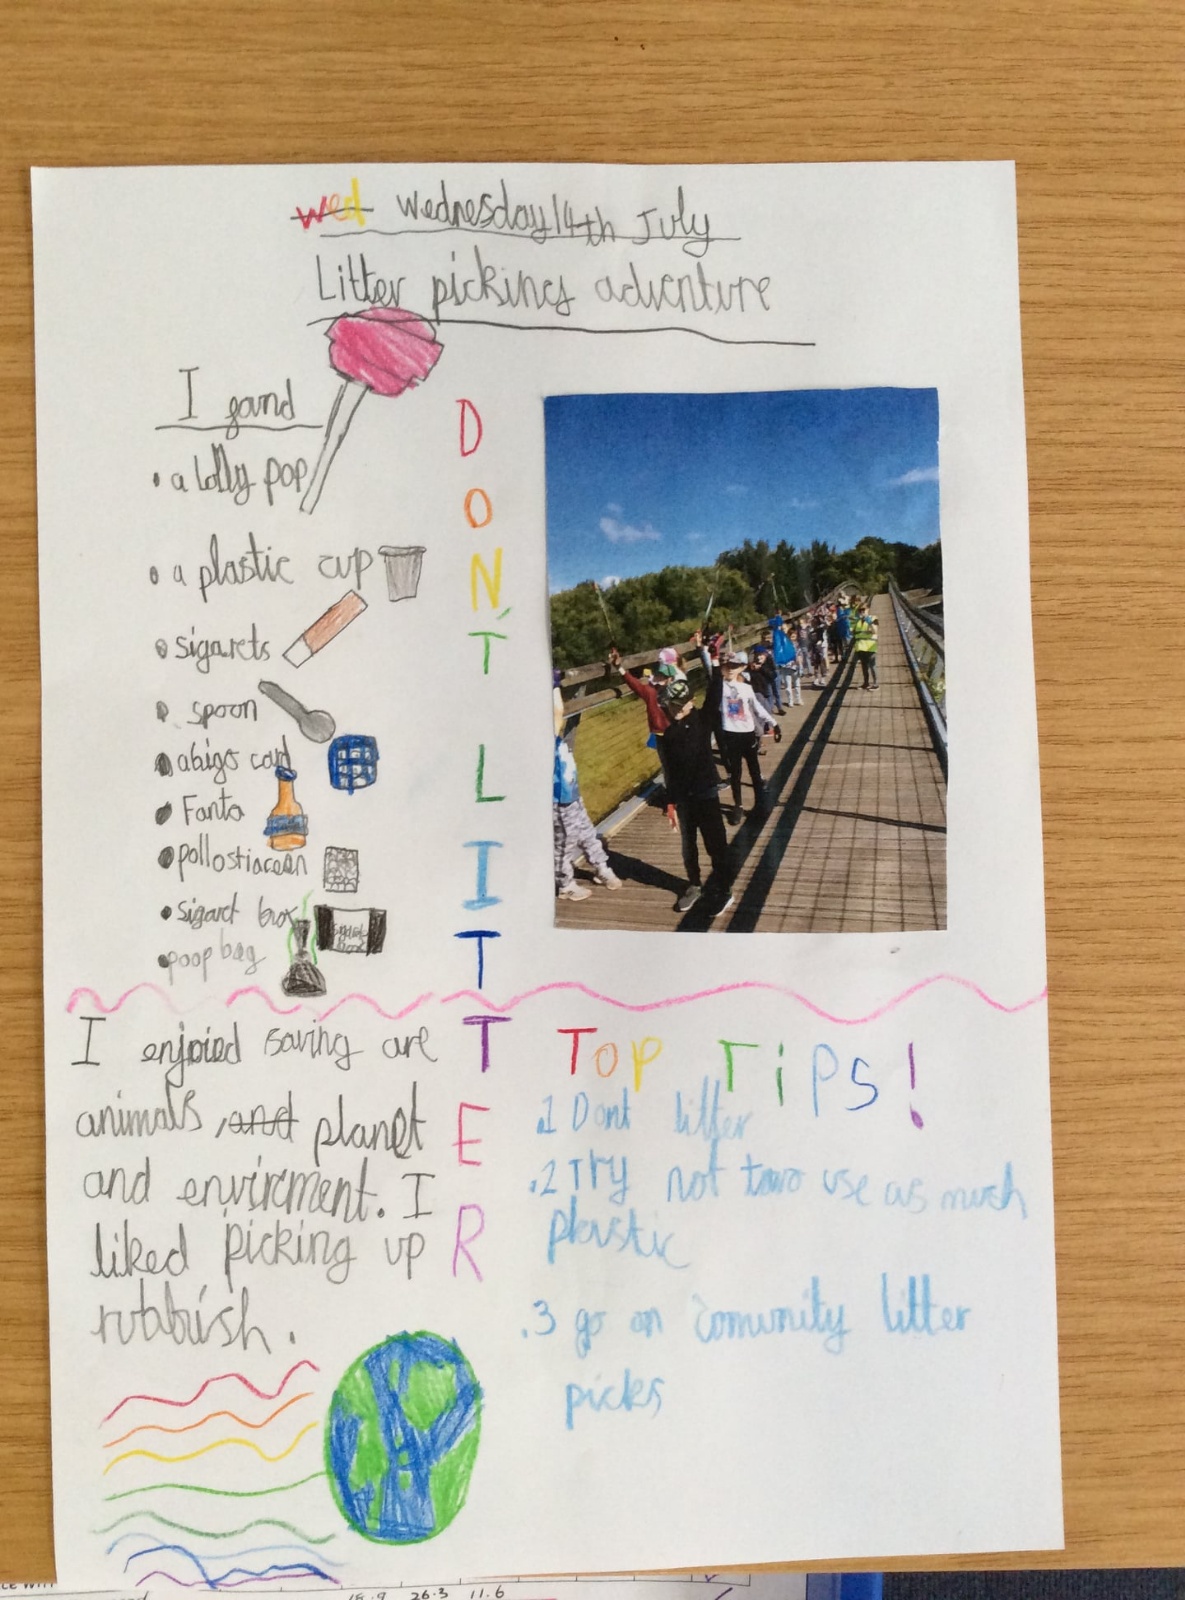 wed Wednesday 14th July
Litter picking adventure
I found
• a lolly pop
• a plastic cup
• sigarets
• spoon
• abigo card
• Fanta
• pollostiarean
• sigart box
• poop bag
DON'T LITTER
I enjoied saving are
animals, and planet
and envirment. I
liked picking up
rubbish.
TOP TiPS!
.1 Dont litter
.2 Try not two use as much
plastic
.3 go on comunity litter
picks
18.9 26.3 11.6